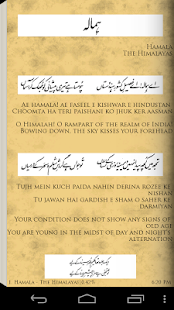 ہمالہ
Hamala
The Himalayas
اے ہمالہ! اے فصیلِ کشورِ ہندوستاں چومتا ہے تیری پیشانی کو جھک کر آسماں
Ae hamala! Ae faseel e kishwer e Hindustan
Choomta ha teri paishani ko jhuk ker aasman
O Himalah! O rampart of the realm of India!
Bowing down, the sky kisses your forehead
تجھ میں کچھ پیدا نہیں دیرینہ روزی کے نشاں تو جواں ہے گردشِ شام و سحر کے درمیاں
Tujh mein kuch paida nahin derina rozee ke
nishan
Tu jawan hai gardish e sham o saher ke
darmiyan
Your condition does not show any signs of
old age
You are young in the midst of day and night's
alternation
1: Hamala - (The Himalayas)